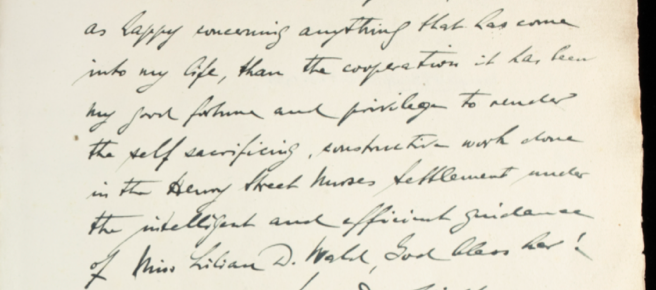 as happy concerning anything that has come
into my life, than the cooperation it has been
my good fortune and privilege to render
the self sacrificing, constructive work done
in the Henry Street Nurses Settlement under
the intelligent and efficient guidance
of Miss Lilian D. Wald, God bless her!